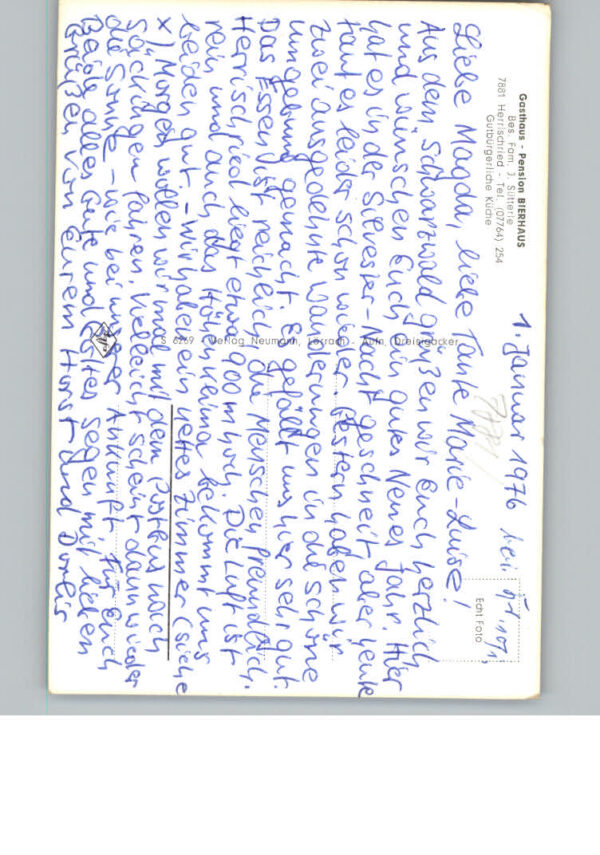 Gasthaus - Pension BIERHAUS
Bes. Fam. J. Sütterle
7881 Herrischried - Tel. (07764) 254
Gutbürgerliche Küche
Echt Foto
1. Januar 1976
Liebe Magda, liebe Tante Marie-Luise!
Aus dem Schwarzwald grüßen wir Euch herzlich
und wünschen Euch ein gutes Neues Jahr. Hier
hat es in der Silvester-Nacht geschneit aber heute
taut es leider schon wieder. Gestern haben wir
zwei ausgedehnte Wanderungen in die schöne
Umgebung gemacht. Es gefällt uns hier sehr gut.
Das Essen ist reichlich, die Menschen freundlich.
Herrischried liegt etwa 900 m hoch. Die Luft ist
rein und auch das Höhenklima bekommt uns
beiden gut - Wir haben ein nettes Zimmer (siehe
x) Morgen wollen wir mal mit dem Postbus nach
Säckingen fahren. Vielleicht scheint dann wieder
die Sonne - wie bei unserer Ankunft. Für Euch
Beide alles Gute und Gottes Segen mit lieben
Grüßen von Eurem Horst und Dorlis
S 6269 - Verlag Neumann, Lörrach - Aufn. Dreisigacker